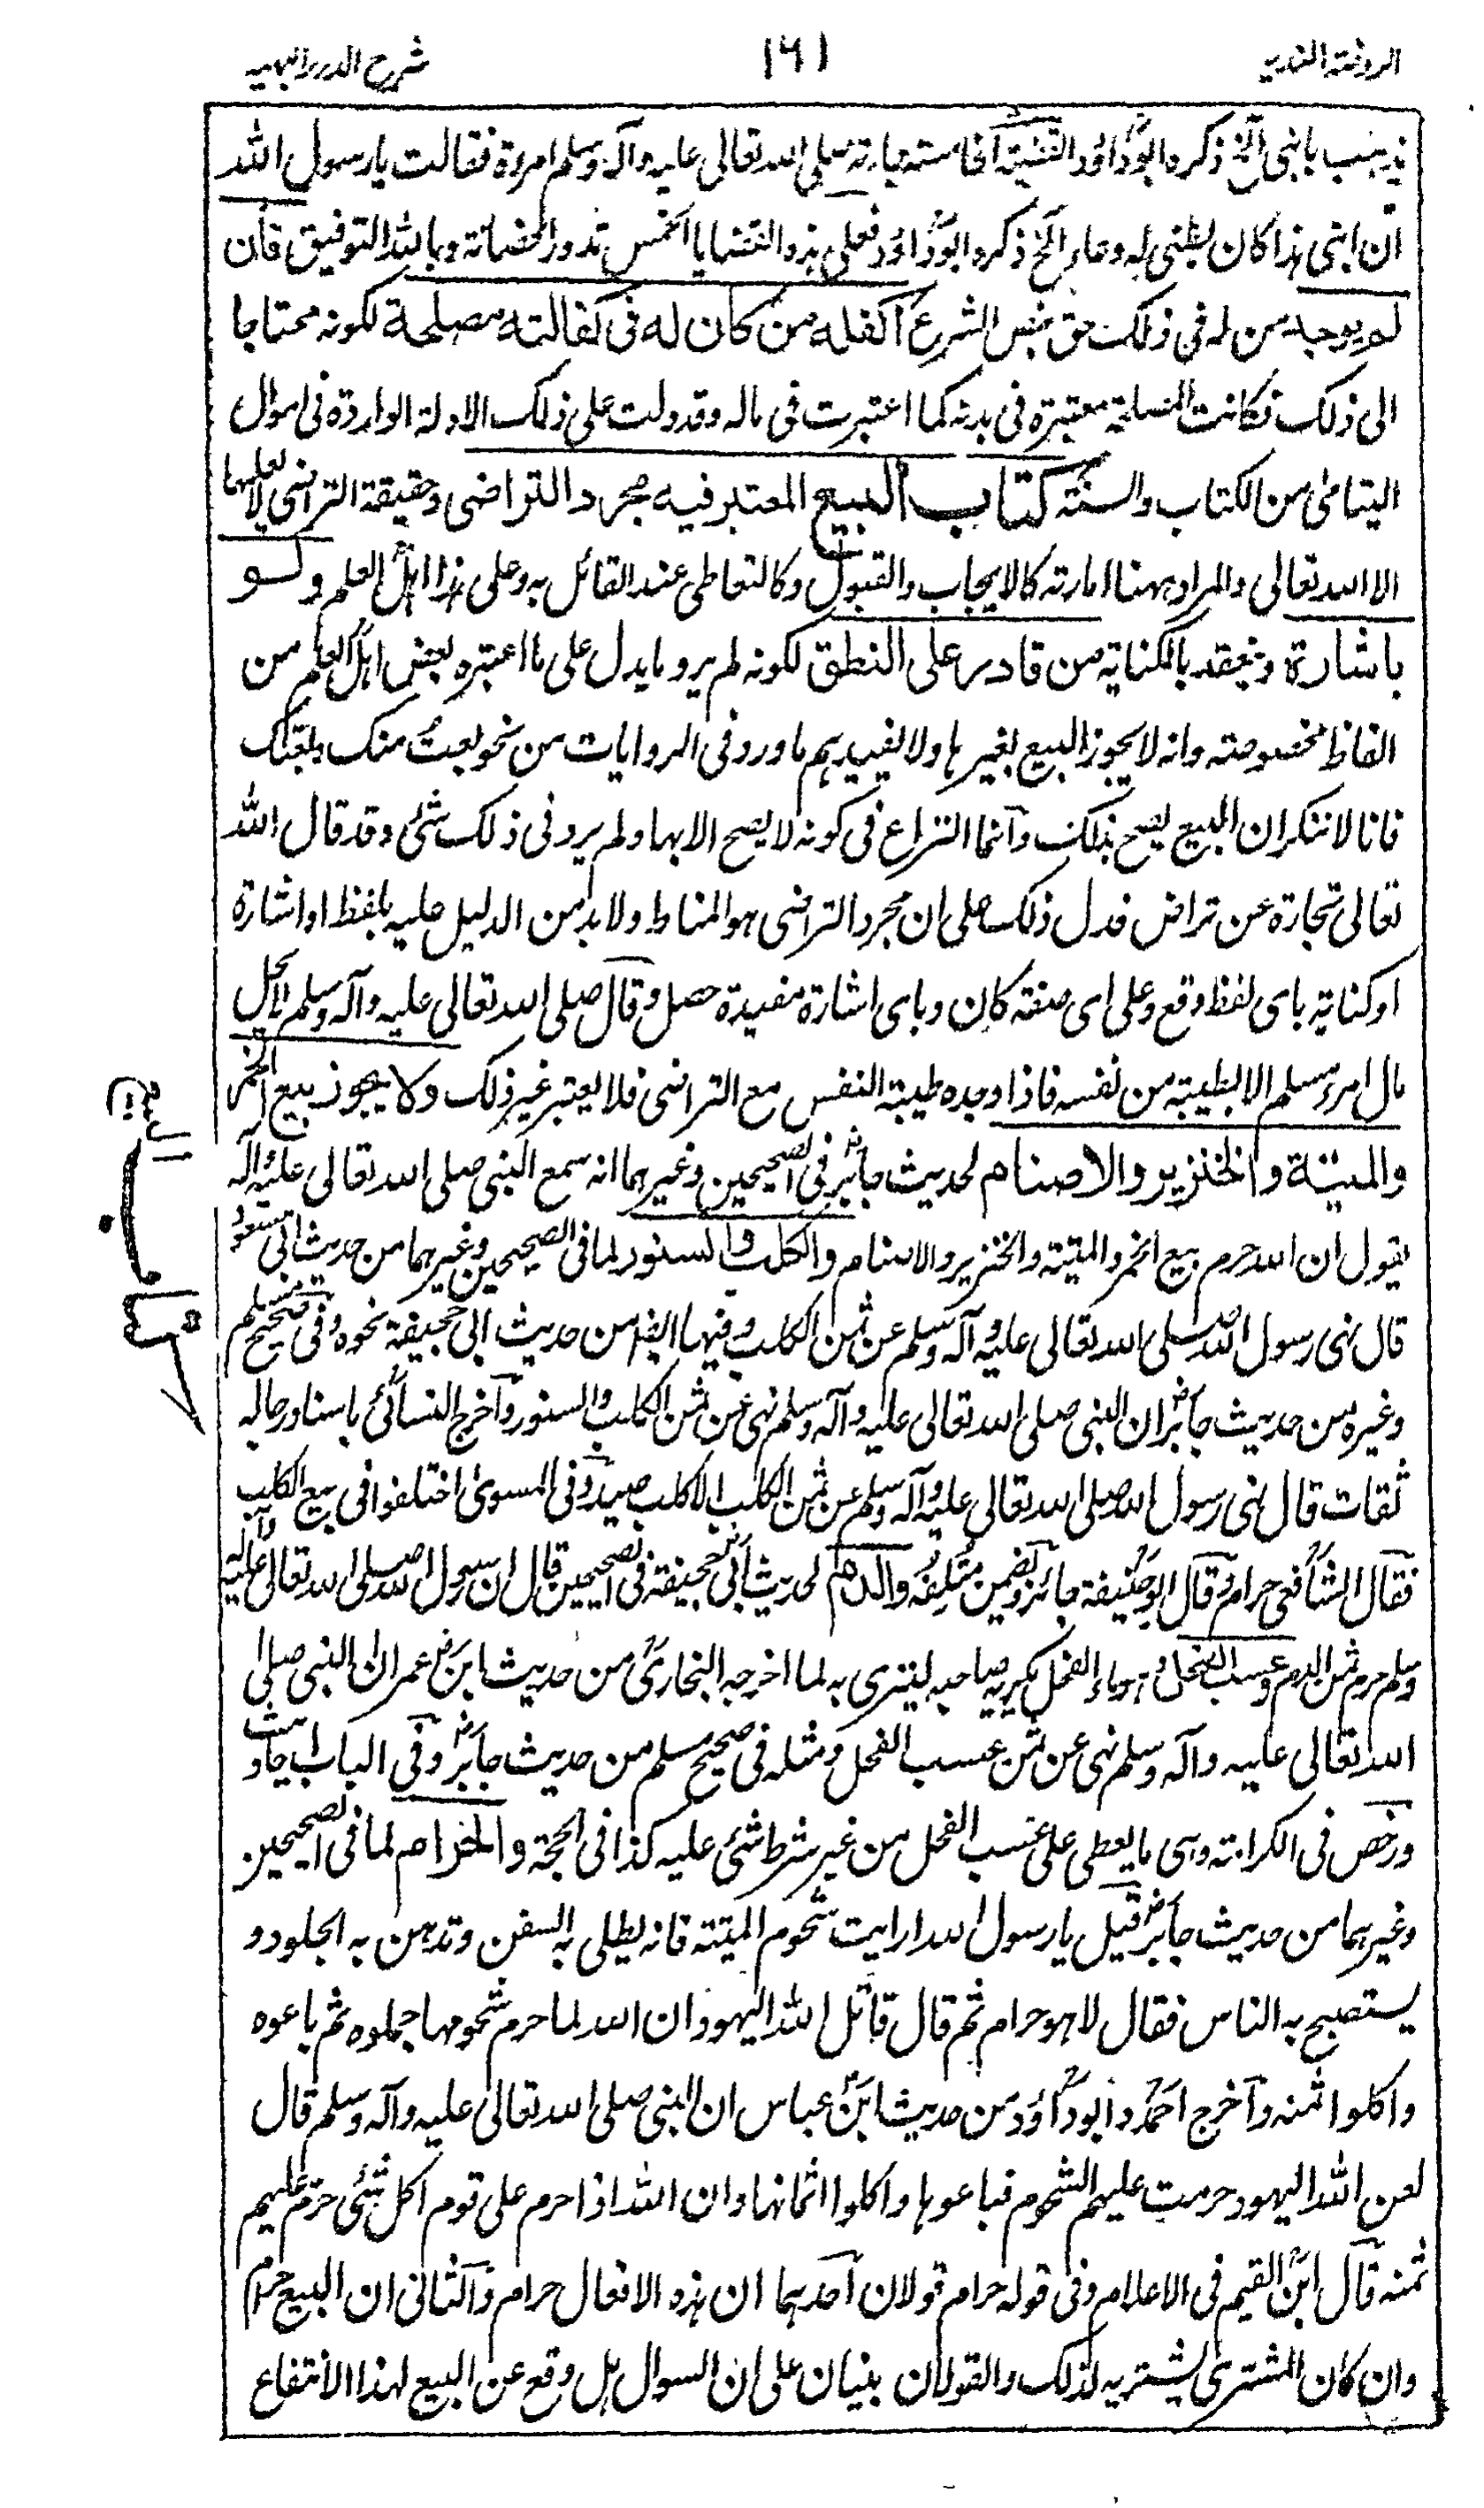 الروضة الندية
١٦١
شرح الدرر البهية
يذهب بابنى الخ ذكره ابوداؤد القضية الخامسة جاءته صلى الله تعالى عليه وآله وسلم امرءة فقالت يا رسول الله
ان ابنى هذا كان بطنى له وعاء الخ ذكره ابوداؤد فعلى هذه القضايا الخمس تدور الحضانة وبالله التوفيق فان
لم يوجد من له فى ذلك حق بنص الشرع اكفله من كان له فى كفالته مصلحة لكونه محتاجا
الى ذلك فكانت المصلحة معتبرة فى بدنه كما اعتبرت فى ماله وقد دلت على ذلك الادلة الواردة فى اموال
اليتامى من الكتاب والسنة كتاب البيع المعتبر فيه مجرد التراضى وحقيقة التراضى لا يعلمها
الا الله تعالى والمراد ههنا امارته كالايجاب والقبول وكالتعاطى عند القائل به وعلى هذا اهل العلم ولو
باشارة وينعقد بالكناية من قادر على النطق لكونه لم يرد ما يدل على ما اعتبره بعض اهل العلم من
الفاظ مخصوصة وانه لا يجوز البيع بغيرها ولا يفيدهم ما ورد فى الروايات من نحو بعت منك بعتك
فانا لا ننكر ان البيع يصح بذلك وانما النزاع فى كونه لا يصح الا بها ولم يرد فى ذلك شئ وقد قال الله
تعالى تجارة عن تراض فدل ذلك على ان مجرد التراضى هو المناط ولا بد من الدليل عليه بلفظ او اشارة
او كناية باى لفظ وقع وعلى اى صفة كان وباى اشارة مفيدة حصل وقال صلى الله تعالى عليه وآله وسلم لا يحل
مال امرء مسلم الا بطيبة من نفسه فاذا وجده طيبة النفس مع التراضى فلا يعتبر غير ذلك ولا يجوز بيع الخمر
والميتة والخنزير والاصنام لحديث جابر فى الصحيحين وغيرهما انه سمع النبى صلى الله تعالى عليه وآله
يقول ان الله حرم بيع الخمر والميتة والخنزير والاصنام والكلب والسنور لما فى الصحيحين وغيرهما من حديث ابى مسعود
قال نهى رسول الله صلى الله تعالى عليه وآله وسلم عن ثمن الكلب وفيهما ايضا من حديث ابى جحيفة نحوه وفى صحيح مسلم
وغيره من حديث جابر ان النبى صلى الله تعالى عليه وآله وسلم نهى عن ثمن الكلب والسنور واخرج النسائى باسناد رجاله
ثقات قال نهى رسول الله صلى الله تعالى عليه وآله وسلم عن ثمن الكلب الا كلب صيد وفى المسوى اختلفوا فى بيع الكلب
فقال الشافعى حرام وقال ابوحنيفة جائز ويضمن متلفه والدم لحديث ابى جحيفة فى الصحيحين قال ان رسول الله صلى الله تعالى عليه وآله
وسلم حرم ثمن الدم وعسب الفحل وهو ماء الفحل يكريه صاحبه لينزى به لما اخرجه البخارى من حديث ابن عمر ان النبى صلى
الله تعالى عليه وآله وسلم نهى عن ثمن عسب الفحل ومثله فى صحيح مسلم من حديث جابر وفى الباب احاديث
ورخص فى الكرامة وهى ما يعطى على عسب الفحل من غير شرط شئ عليه كذا فى الحجة والحرام لما فى الصحيحين
وغيرهما من حديث جابر قيل يا رسول الله ارايت شحوم الميتة فانه يطلى به السفن وتدهن به الجلود و
يستصبح به الناس فقال لا هو حرام ثم قال قاتل الله اليهود ان الله لما حرم شحومها جملوه ثم باعوه
واكلوا ثمنه واخرج احمد وابوداؤد من حديث ابن عباس ان النبى صلى الله تعالى عليه وآله وسلم قال
لعن الله اليهود حرمت عليهم الشحوم فباعوها واكلوا اثمانها وان الله اذا حرم على قوم اكل شئ حرم عليهم
ثمنه قال ابن القيم فى الاعلام وفى قوله حرام قولان احدهما ان هذه الافعال حرام والثانى ان البيع حرام
وان كان المشترى يشتريه لذلك والقولان بنيان على ان السوال هل وقع عن البيع لهذا الانتفاع